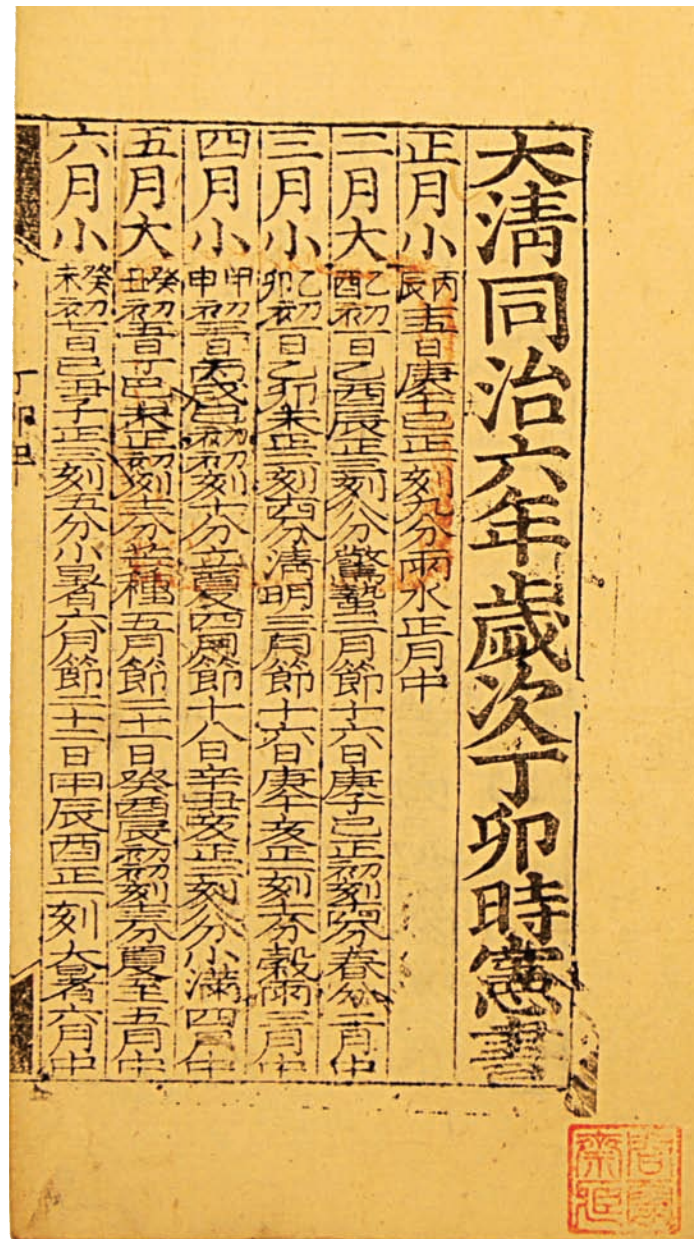 大淸同治六年歲次丁卯時憲書
正月小 丙辰 十五日庚午巳正一刻九分雨水正月中
二月大 乙酉 初一日乙酉辰正三刻八分驚蟄二月節十六日庚子巳正初刻分春分二月中
三月小 乙卯 初一日乙卯未正刻四分清明三月節十六日庚午亥正刻分穀雨三月中
四月小 甲申 初三日丙戌巳初初刻十分立夏四月節十八日辛丑亥正二刻分小滿四月中
五月大 癸丑 初五日丁巳未正初刻分芒種五月節二十一日癸酉辰初初刻分夏至五月中
六月小 癸未 初七日己丑子正三刻五分小暑六月節二十二日甲辰酉正一刻大暑六月中
丁卯